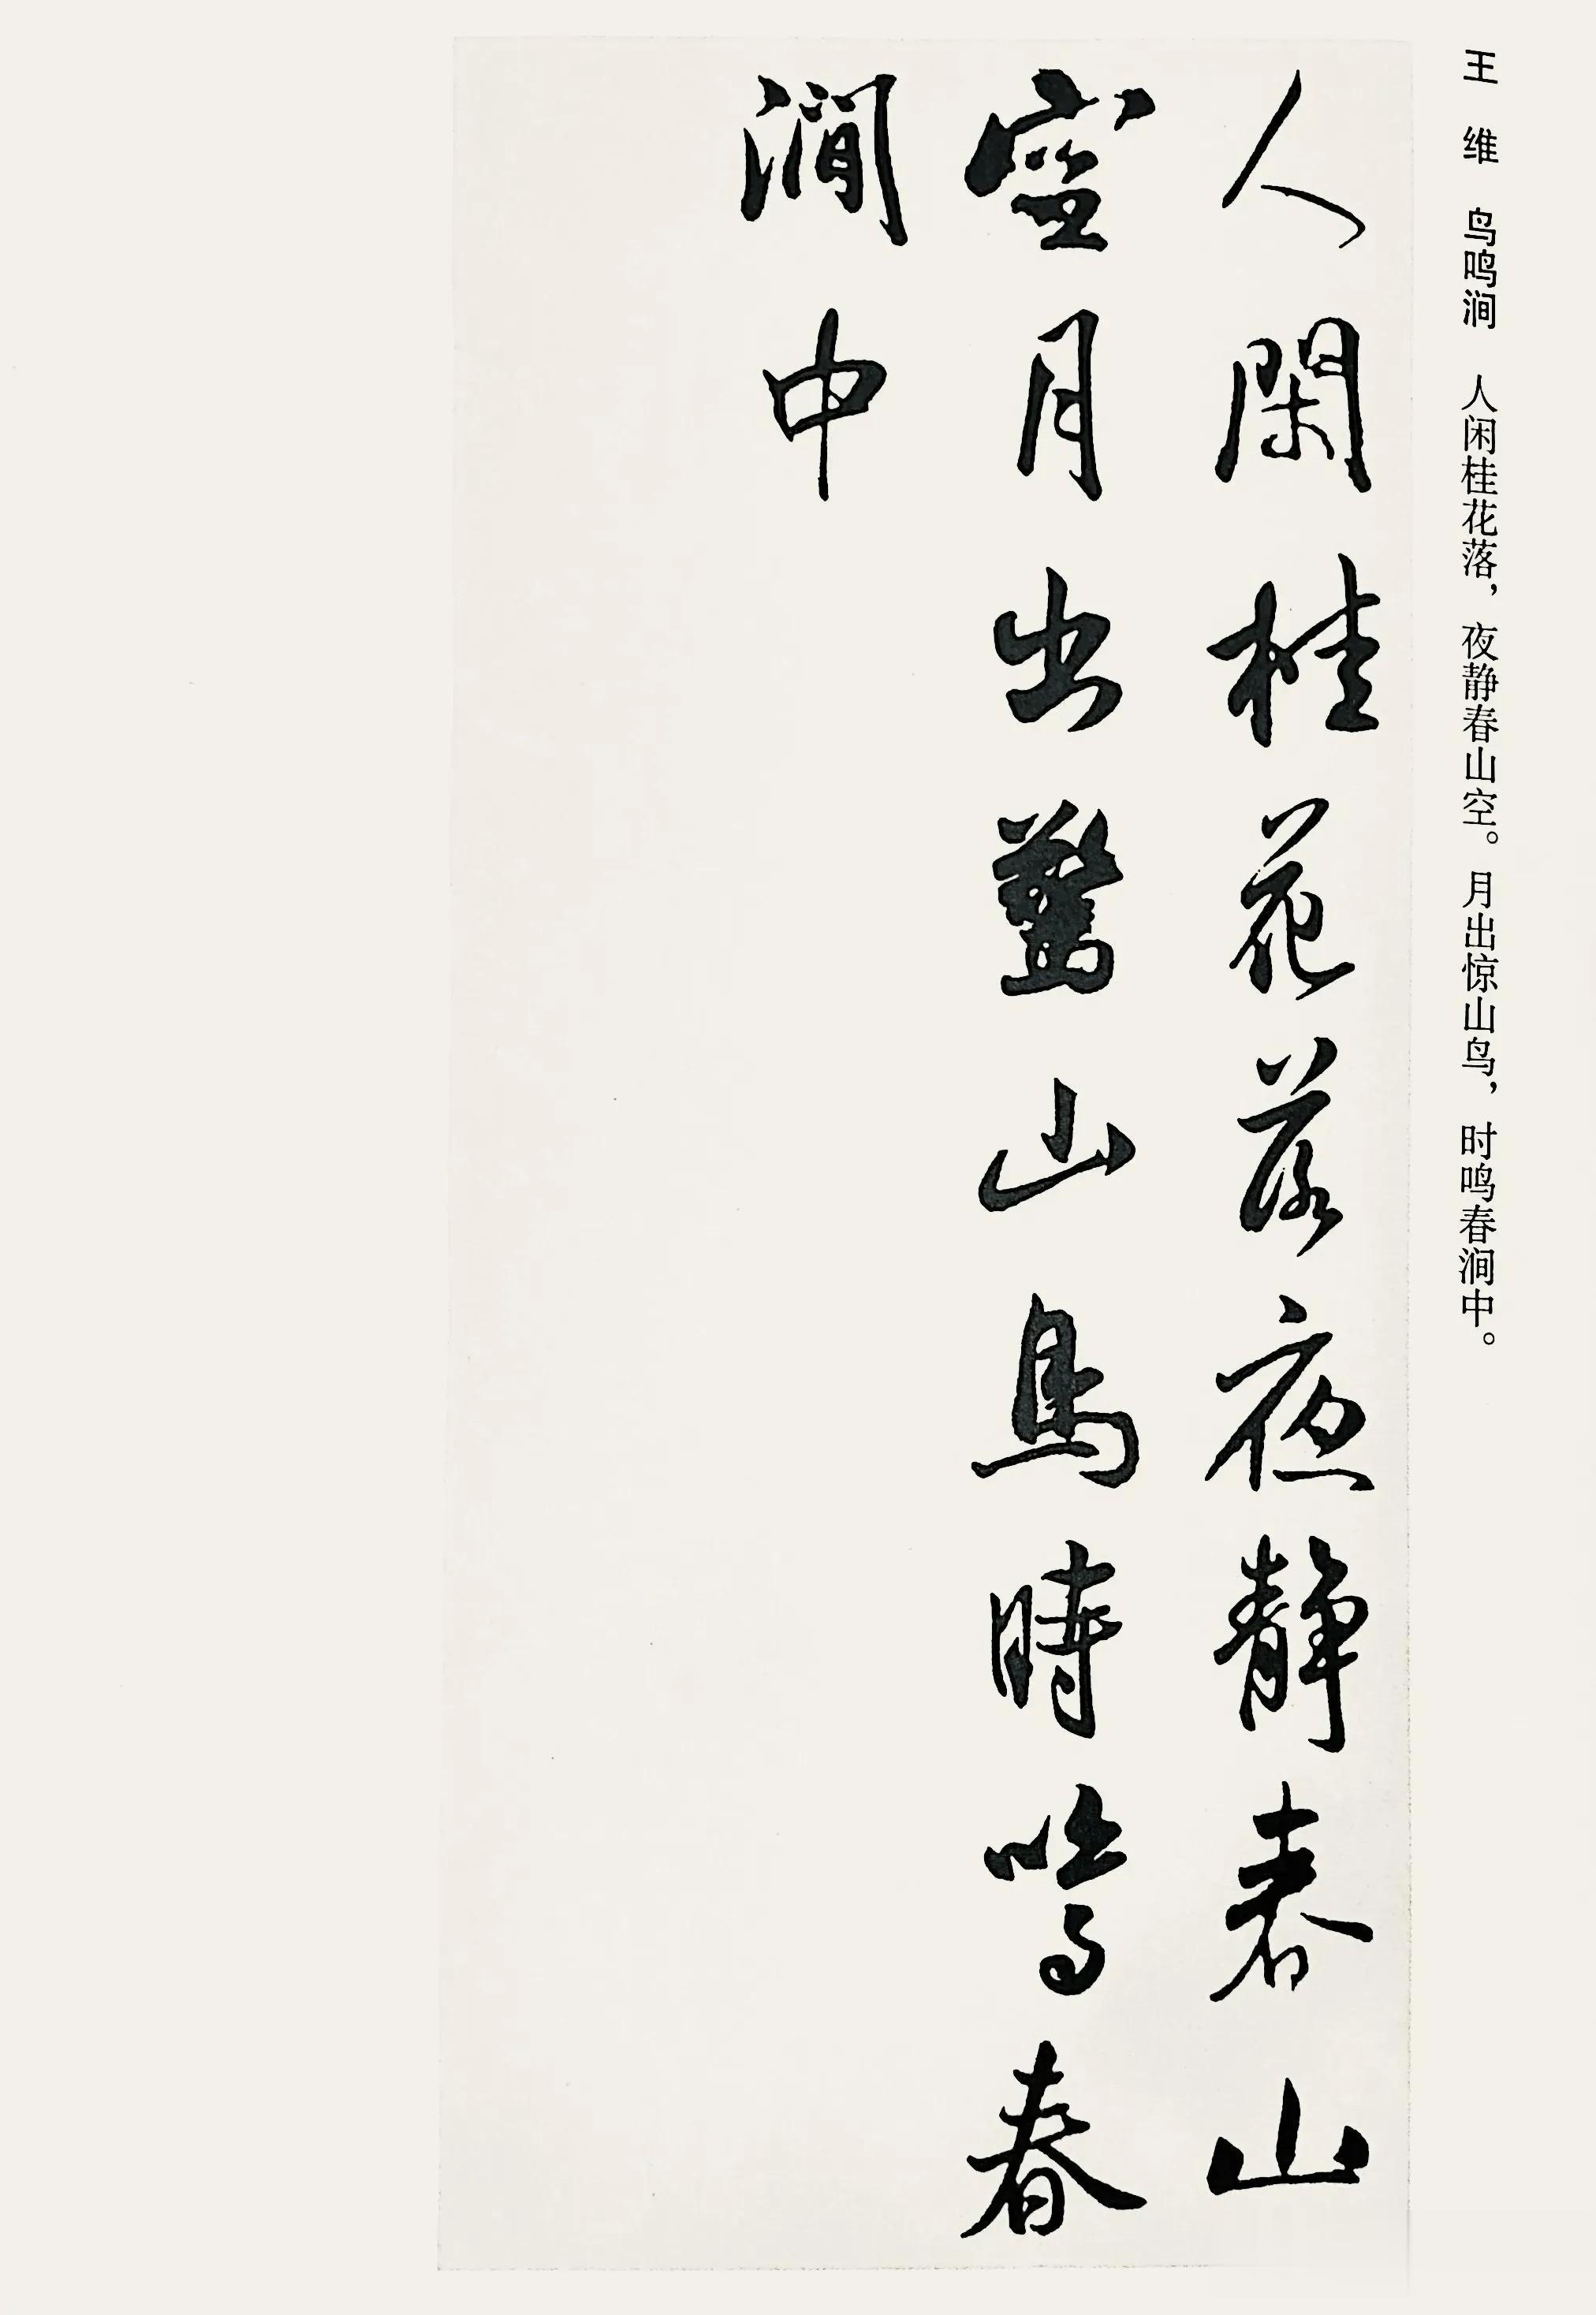 王维 鸟鸣涧 人闲桂花落，夜静春山空。月出惊山鸟，时鸣春涧中。
人閑桂花落夜靜春山
空月出驚山鳥時鳴春
澗中